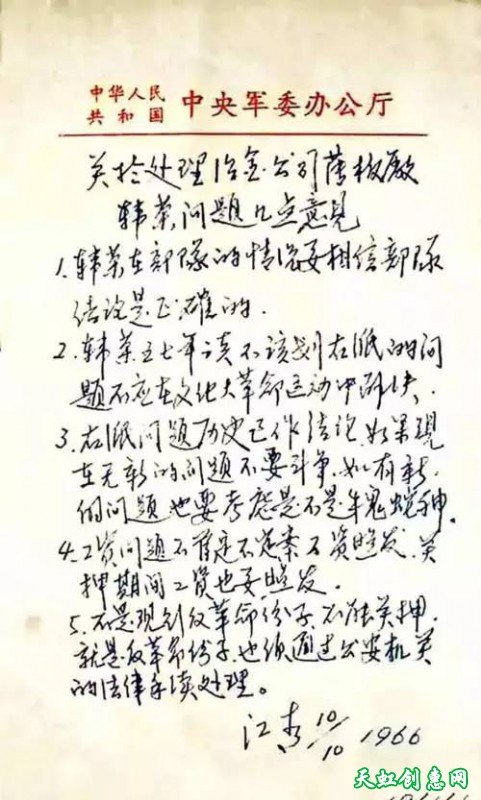 中华人民
共和国 中央军委办公厅
关於处理冶金公司薄板厰
韩荣问题几点意見
1.韩荣在部隊的情况要相信部隊
结论是正確的.
2.韩荣五七年该不该划右派的问
题不应在文化大革命运动中解决.
3.右派问题历史已作结论.如果現
在无新的问题不要斗争.如有新
的问题也要考虑是不是牛鬼蛇神.
4.工资问题不肯定不定案工资照发.关
押期间工资也要照发.
5.不是现刻反革命份子.不能关押.
就是反革命份子.也须通过公安机关
的法律手续处理。
江青 10/10 1966
天虹创惠网